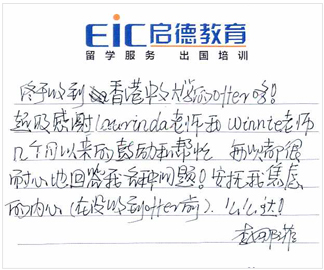 EIC启德教育
留学服务 出国培训
终于收到香港中文大学的offer啦!
超级感谢Laurinda老师和Winnie老师
几个月以来的鼓励和帮忙 每次都很
耐心地回答我各种问题!安抚我焦虑
的内心(在没收到offer前).么么哒!